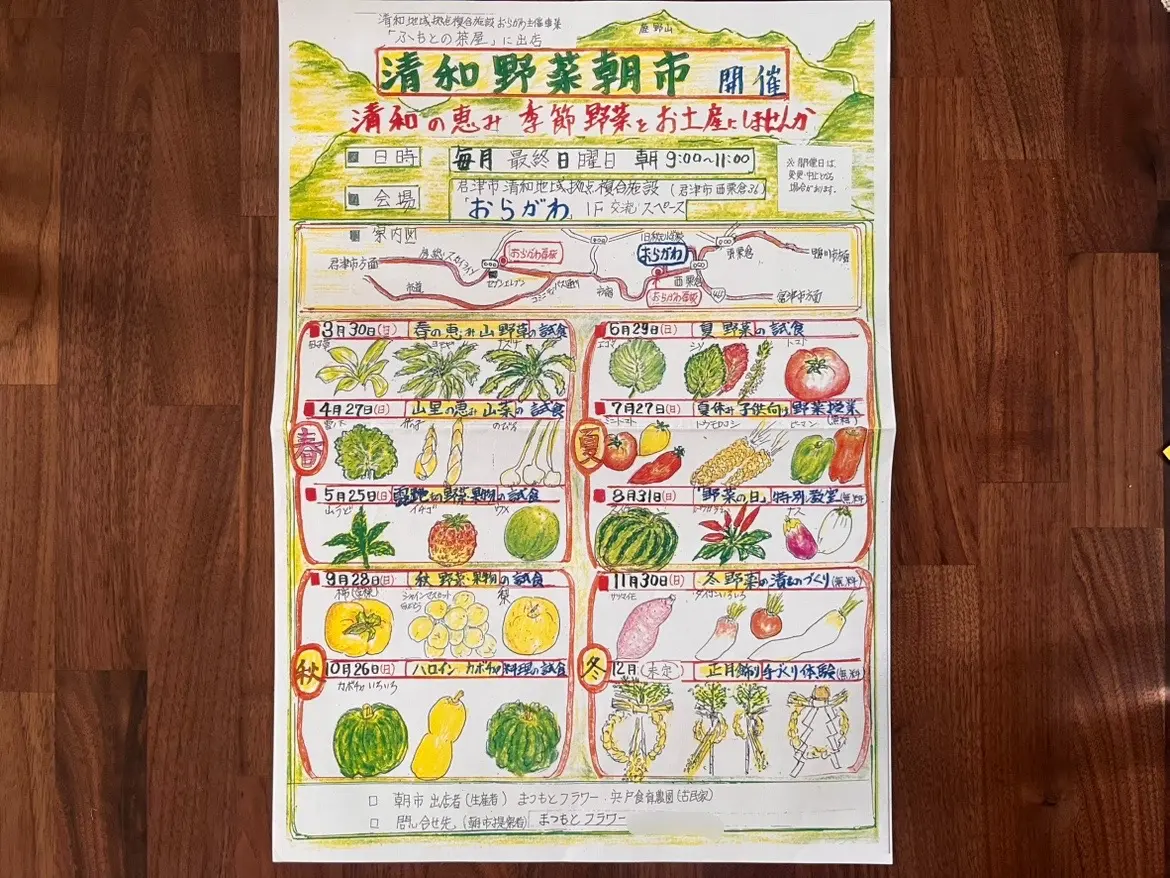 清和地域拠点複合施設 おらがわ主催事業
「ふもとの茶屋」に出店
鹿野山
清和野菜朝市 開催
清和の恵み 季節野菜をお土産にしませんか
日時 毎月 最終日曜日 朝9:00〜11:00
※開催日は
変更・中止となる
場合があります。
会場 君津市清和地域拠点複合施設(君津市西粟倉36)
「おらがわ」1F 交流スペース
案内図
君津市方面
房総スカイライン
おらがわ看板
セブンイレブン
おらがわ
西粟倉
鴨川市方面
市道
市宿
西粟倉
おらがわ看板
富津市方面
3月30日(日) 春の恵み山野草の試食
4月27日(日) 山里の恵み山菜の試食
のびろ
春
5月25日(日) 露地の野菜・果物の試食
山うど イチゴ ウメ
6月29日(日) 夏野菜の試食
エゴマ シソ トマト
7月27日(日) 夏休み子供向け野菜授業(無料)
ミニトマト トウモロコシ ピーマン
夏
8月31日(日) 「野菜の日」特別教室(無料)
スイカ トウガラシ ナス
9月28日(日) 秋野菜・果物の試食
シャインマスカット 梨
秋
10月26日(日) ハロイン カボチャ料理の試食
カボチャいろいろ
11月30日(日) 冬野菜の漬ものづくり(無料)
サツマイモ ダイコンいろいろ
冬
12月(未定) 正月飾り手作り体験(無料)
朝市出店者(生産者) まつもとフラワー・宍戸食育農園(古民家)
問い合せ先(朝市提案者) まつもとフラワー